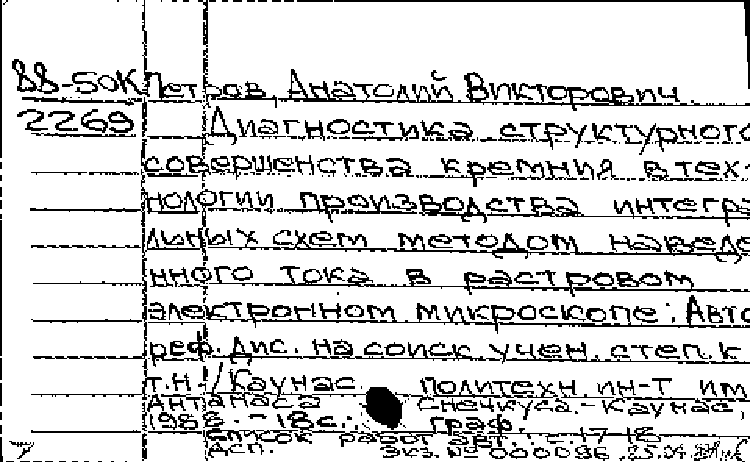 88-50К Петров, Анатолий Викторович.
2269 Диагностика структурного
совершенства кремния в тех-
нологии производства интегра
льных схем методом наведе
нного тока в растровом
электронном микроскопе: Авто
реф. дис. на соиск. учен. степ. к.
т.н. / Каунас. политехн. ин-т им.
Антанаса Снечкуса. - Каунас,
198 . - 18 с.: граф.
Список работ авт.: с. 17-18
ДСП. Экз. № 000096